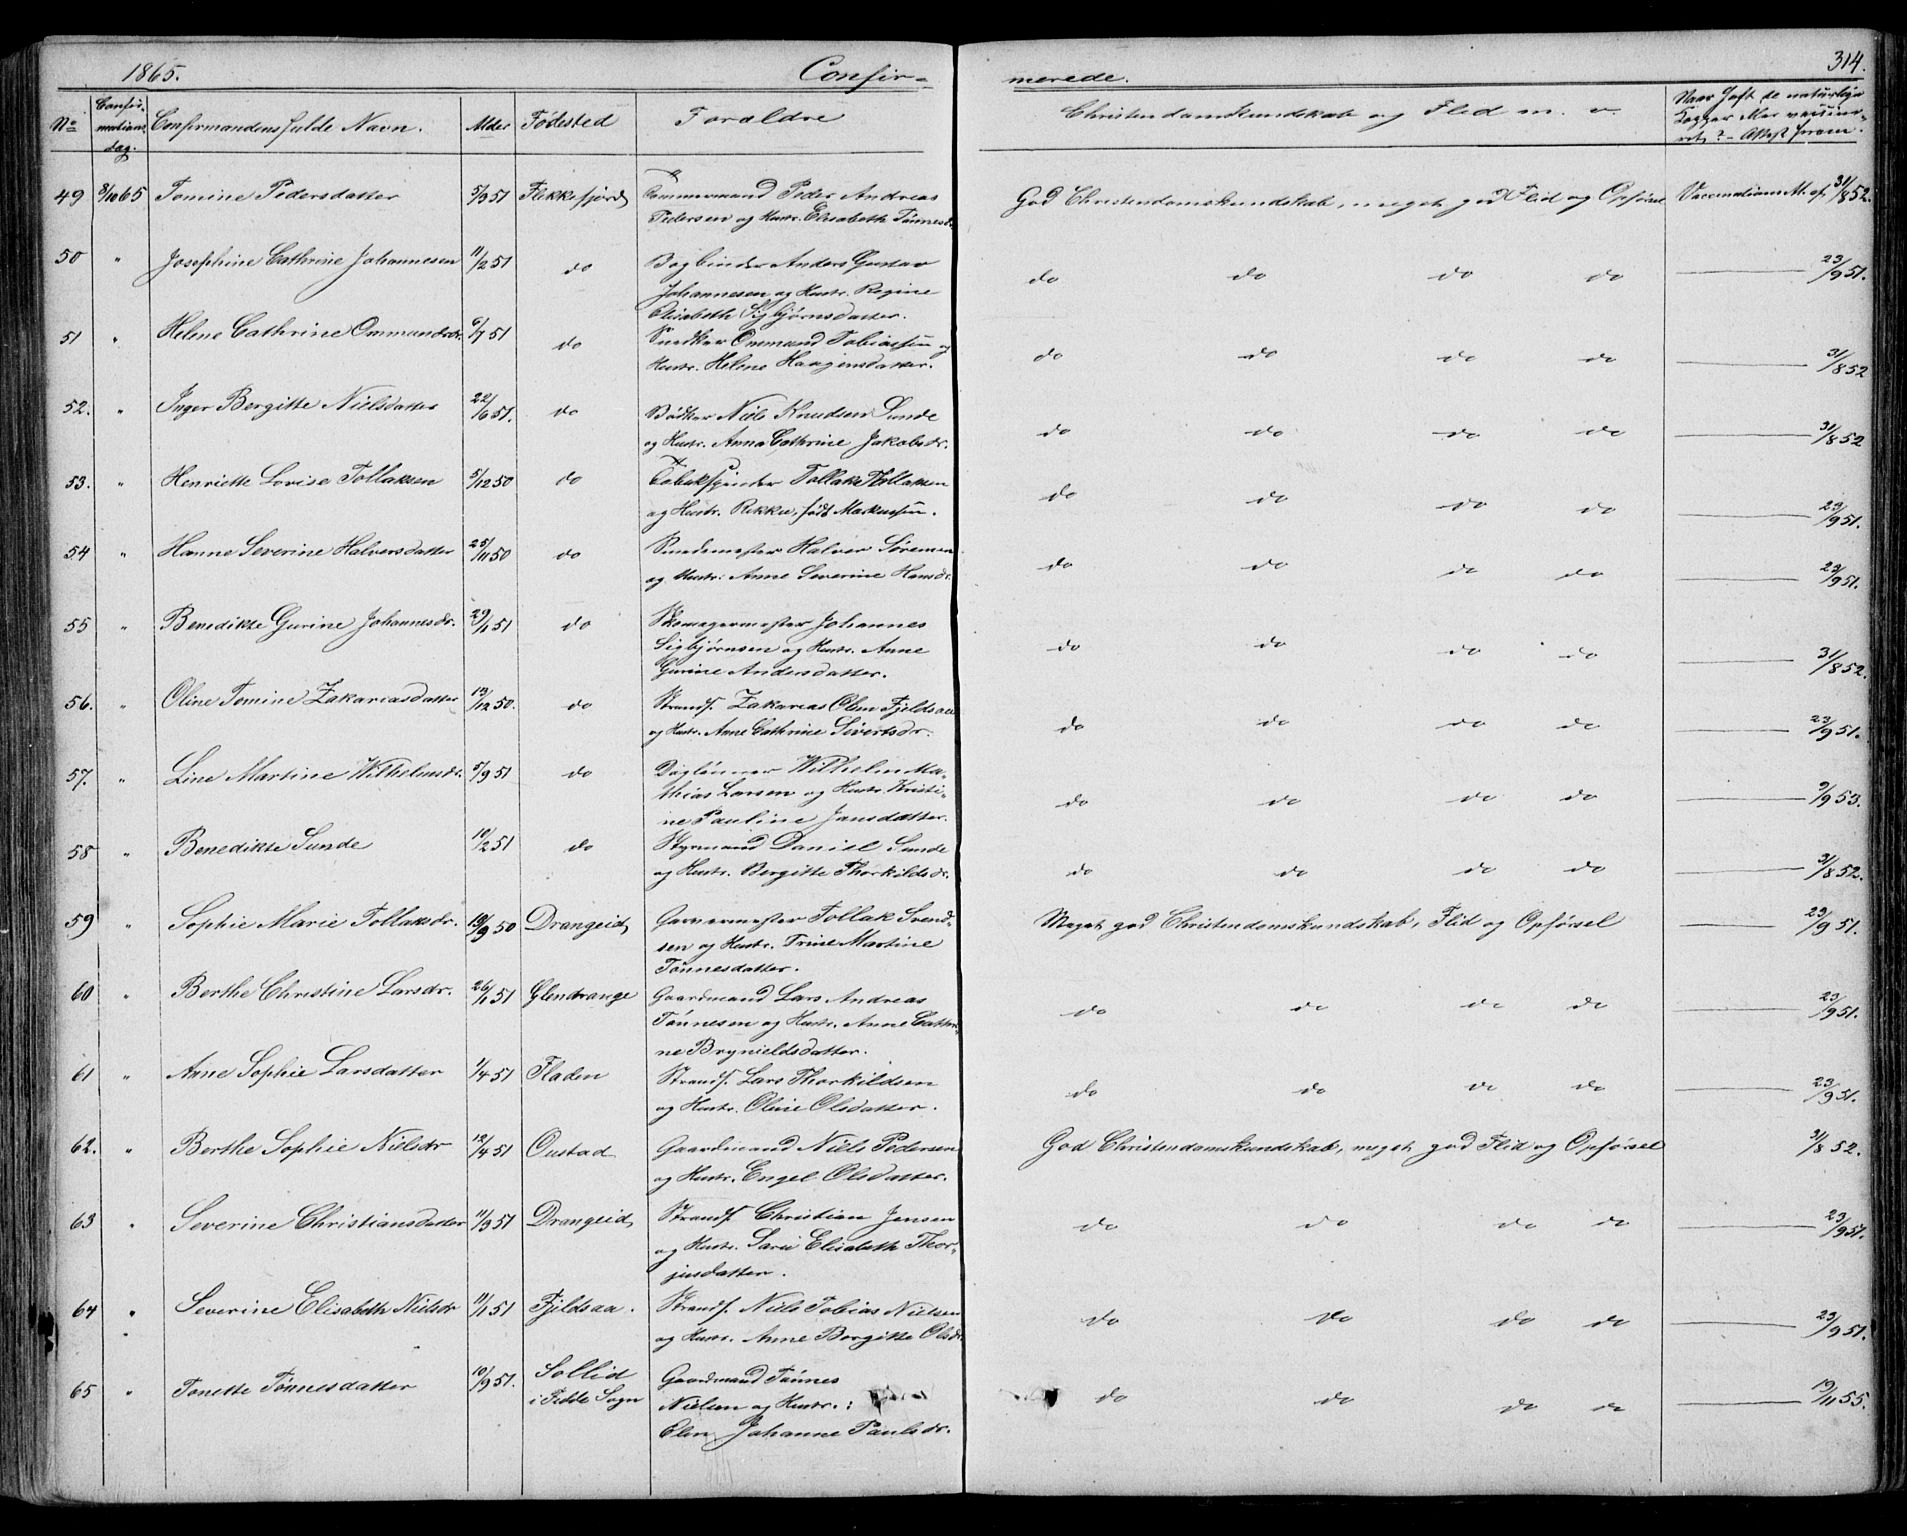 1865. Confir- merede. 314.
No Confirmations dag. Confirmandens fulde Navn. Alder Fødested Forældre Christendomskundskab og Flid m. v. Naar haft de naturlige Kopper eller vaccineret? – Attest herom.
49 8/10 65 Tomine Pedersdatter 5/9 51 Flekkefjord Tømmermand Peder Andreas God Christendomskundskab, meget god Flid og Opførsel Vaccinations At. af 31/8 52.
Pedersen og Hustr. Elisabeth Tønnesdr.
50 " Josephine Cathrine Johannesen 11/2 51 do Bogbinder Anders Gustav do do do do 23/9 51.
Johannesen og Hustr. Regine
Elisabeth Sigbjørnsdatter.
51 " Helene Cathrine Ommundsdr. 6/7 51 do Snedker Ommund Tobiassen og do do do do 31/8 52
Hustr. Helene Haagensdatter.
52. " Inger Bergitte Nielsdatter 22/6 51. do Bødker Niels Knudsen Sunde do do do do 31/8 52
og Hustr. Anna Cathrine Jakobsdr.
53. " Henriette Lovise Tollaksen 5/12 50 do Tobakspinder Tollak Tollaksen do do do do 23/9 51.
og Hustr. Rikke, født Markussen.
54 " Hanne Severine Halversdatter 25/11 50 do Smedemester Halver Sørensen do do do do 23/9 51.
og Hustr: Anne Severine Hansdr.
55 " Benedikte Gurine Johannesdr. 29/1 51 do Skomagermester Johannes do do do do 31/8 52.
Sigbjørnsen og Hustr. Anne
Gurine Andersdatter.
56. " Oline Tomine Zakariasdatter 13/12 50. do Strands. Zakarias Olsen Fjeldsaa do do do do 23/9 51.
og Hustr. Anne Cathrine Sivertsdr.
57. " Line Martine Wilhelmsdr. 5/9 51 do Daglønner Wilhelm Ma- do do do do 9/9 53.
thias Larsen og Hustr. Kristi-
ne Pauline Jansdatter.
58 " Benedikte Sunde 10/2 51 do Styrmand Daniel Sunde do do do do 31/8 52.
og Hustr. Bergitte Thorkildsdr.
59 " Sophie Marie Tollaksdr. 19/9 50 Drangeid Garvermester Tollak Svend- Meget god Christendomskundskab, Flid og Opførsel 23/9 51.
sen og Hustr. Trine Martine
Tønnesdatter.
60 " Berthe Christine Larsdr. 26/1 51 Glendrange Gaardmand Lars Andreas do do do do 23/9 51.
Tønnesen og Hustr. Anne Cathri-
ne Brynieldsdatter.
61 " Anne Sophie Larsdatter 1/4 51 Fladen Strands. Lars Thorkildsen do do do do 23/9 51.
og Hustr. Oline Olsdatter.
62. " Berthe Sophie Nielsdr 12/4 51 Oustad Gaardmand Niels Pedersen God Christendomskundskab, meget god Flid og Opførsel 31/8 52.
og Hustr. Engel Olsdatter.
63 " Severine Christiansdatter 11/3 51 Drangeid Strands. Christian Jensen do do do do 23/9 51.
og Hustr. Sare Elisabeth Thor-
jusdatter.
64 " Severine Elisabeth Nielsdr 11/1 51 Fjeldsaa. Strands. Niels Tobias Nielsen do do do do 23/9 51.
og Hustr. Anne Bergitte Olsdr.
65 " Tonette Tønnesdatter 10/9 51. Sollid Gaardmand Tønnes do do do do 19/11 55.
i Fedde Sogn Nielsen og Hustr.:
Elen Johanne Paulsdr.